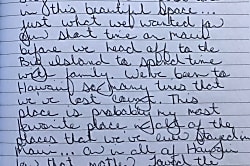 in this beautiful space...
just what we wanted for
our short time on Maui
before we head off to the
Big Island to spend time
with family. We've been to
Hawaii so many times that
we've lost count. This
place is probably my most
favorite place out of all the
places that we've ever stayed in
Maui... and all of Hawaii
for that matter. Loved the